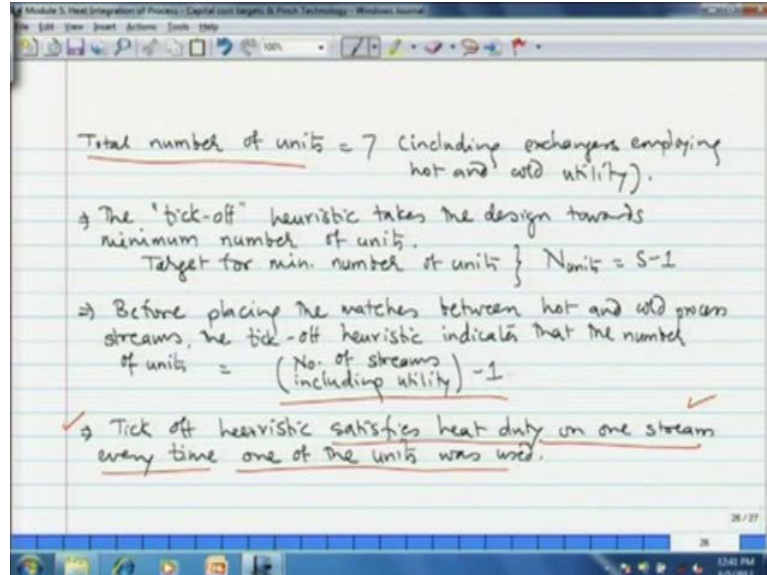 Module 5: Heat Integration of Process - Capital cost targets & Pinch Technology - Windows Journal
File Edit View Insert Actions Tools Help
100%
Total number of units = 7 (including exchangers employing
hot and cold utility).
⇒ The "tick-off" heuristic takes the design towards
minimum number of units.
Target for min. number of units } Nunits = S-1
⇒ Before placing the matches between hot and cold process
streams, the tick-off heuristic indicates that the number
of units = (No. of streams including utility) - 1
⇒ Tick off heuristic satisfies heat duty on one stream
every time one of the units was used.
26 / 27
26
12:41 PM